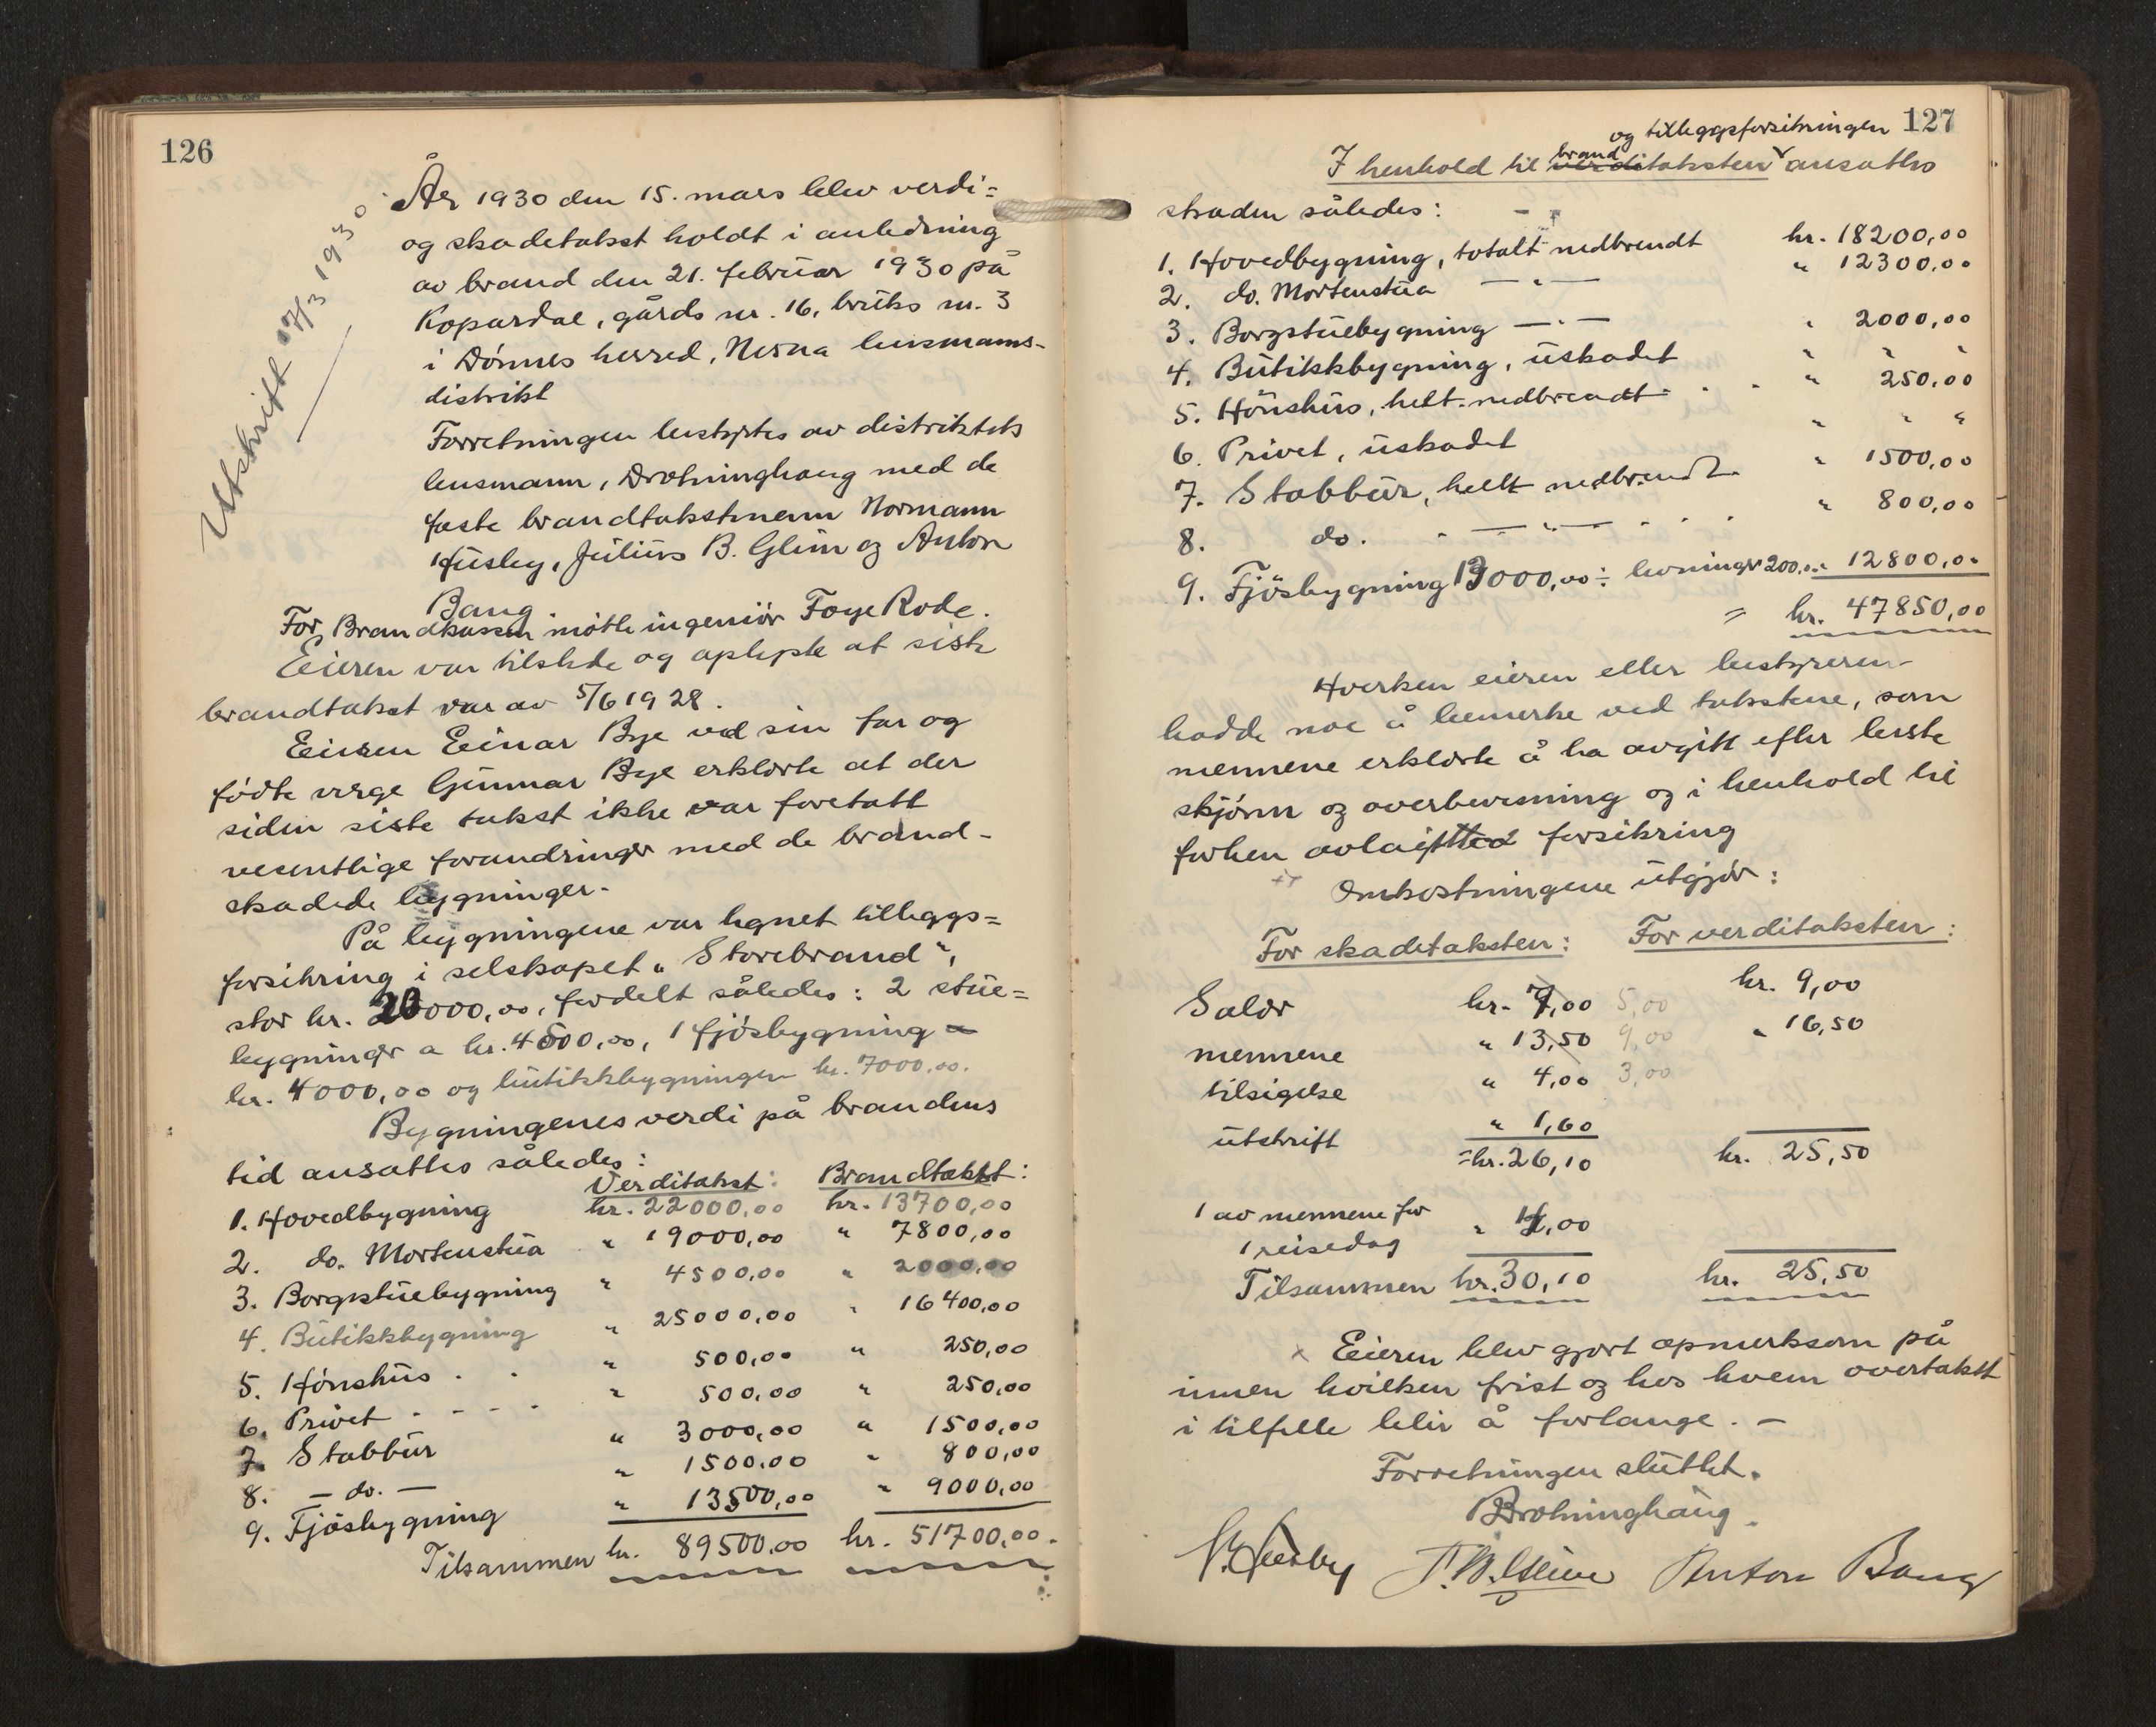 126
Utskrift 17/3 1930.
År 1930 den 15. mars blev verdi=
og skadetakst holdt i anledning
av brand den 21. februar 1930 på
Kopardal, gårds nr. 16, bruks nr. 3
i Dönnes herred, Nesna lensmanns-
distrikt
Forretningen bestyrtes av distriktets
lensmann, Drotninghaug med de
faste brandtakstmenn Normann
Husby, Julius B. Glein og Anton
Bang.
For Brandkassen møtte ingeniör Foye Rode.
Eieren var tilstede og oplyste at siste
brandtakst var av 5/6 1928.
Eieren Einar Bye ved sin far og
födte verge Gunnar Bye erklærte at der
siden siste takst ikke var foretatt
vesentlige forandringer med de brand-
skadede bygninger.
På bygningene var tegnet tilleggs=
forsikring i selskapet "Storebrand",
stor kr. 20000,00, fordelt således: 2 stue=
bygninger a kr. 4500,00, 1 fjösbygning a
kr. 4000,00 og butikkbygningen kr. 7000,00.
Bygningenes verdi på brandens
tid ansattes således:
Verditakst: Brandtakst:
1. Hovedbygning kr. 22000,00 kr. 13700,00
2. do. Mortenstua " 19000,00 " 7800,00
3. Borgstuebygning " 4500,00 " 2000,00
4. Butikkbygning " 25000,00 " 16400,00
5. Hönshus . . " 500,00 " 250,00
6. Privet . - - - . " 500,00 " 250,00
7. Stabbur " 3000,00 " 1500,00
8. - do. - " 1500,00 " 800,00
9. Fjösbygning " 13500,00 " 9000,00
Tilsammen kr. 89500,00 kr. 51700,00.
127
og tilleggsforsikringen
brand
I henhold til verditaksten ansattes
skaden således:
1. Hovedbygning, totalt nedbrendt kr. 18200,00
2. do. Mortenstua — " — " 12300,00
3. Borgstuebygning — " — " 2000,00
4. Butikkbygning, uskadet " " "
5. Hönshus, helt nedbrendt . . " 250,00
6. Privet, uskadet " " "
7. Stabbur, helt nedbrendt " 1500,00
8. do. - — " — . . . " 800,00
9. Fjösbygning 13000,00 ÷ levninger 200,00 " 12800,00
= kr. 47850,00
Hverken eieren eller bestyreren
hadde noe å bemerke ved takstene, som
mennene erklærte å ha avgitt efter beste
skjönn og overbevisning og i henhold til
forhen avlagt ed forsikring
Omkostningene utgjör:
For skadetaksten: For verditaksten:
Salær kr. 7,00 5,00 kr. 9,00
mennene " 13,50 9,00 " 16,50
tilsigelse " 4,00 3,00
utskrift " 1,60
= kr. 26,10 kr. 25,50
1 av mennene for
1 reisedag " 4,00
Tilsammen kr. 30,10 kr. 25,50
x Eieren blev gjort opmerksom på
innen hvilken frist og hos hvem overtakst
i tilfelle blir å forlange. -
Forretningen sluttet.
Drotninghaug.
N. Husby J. B. Glein Anton Bang